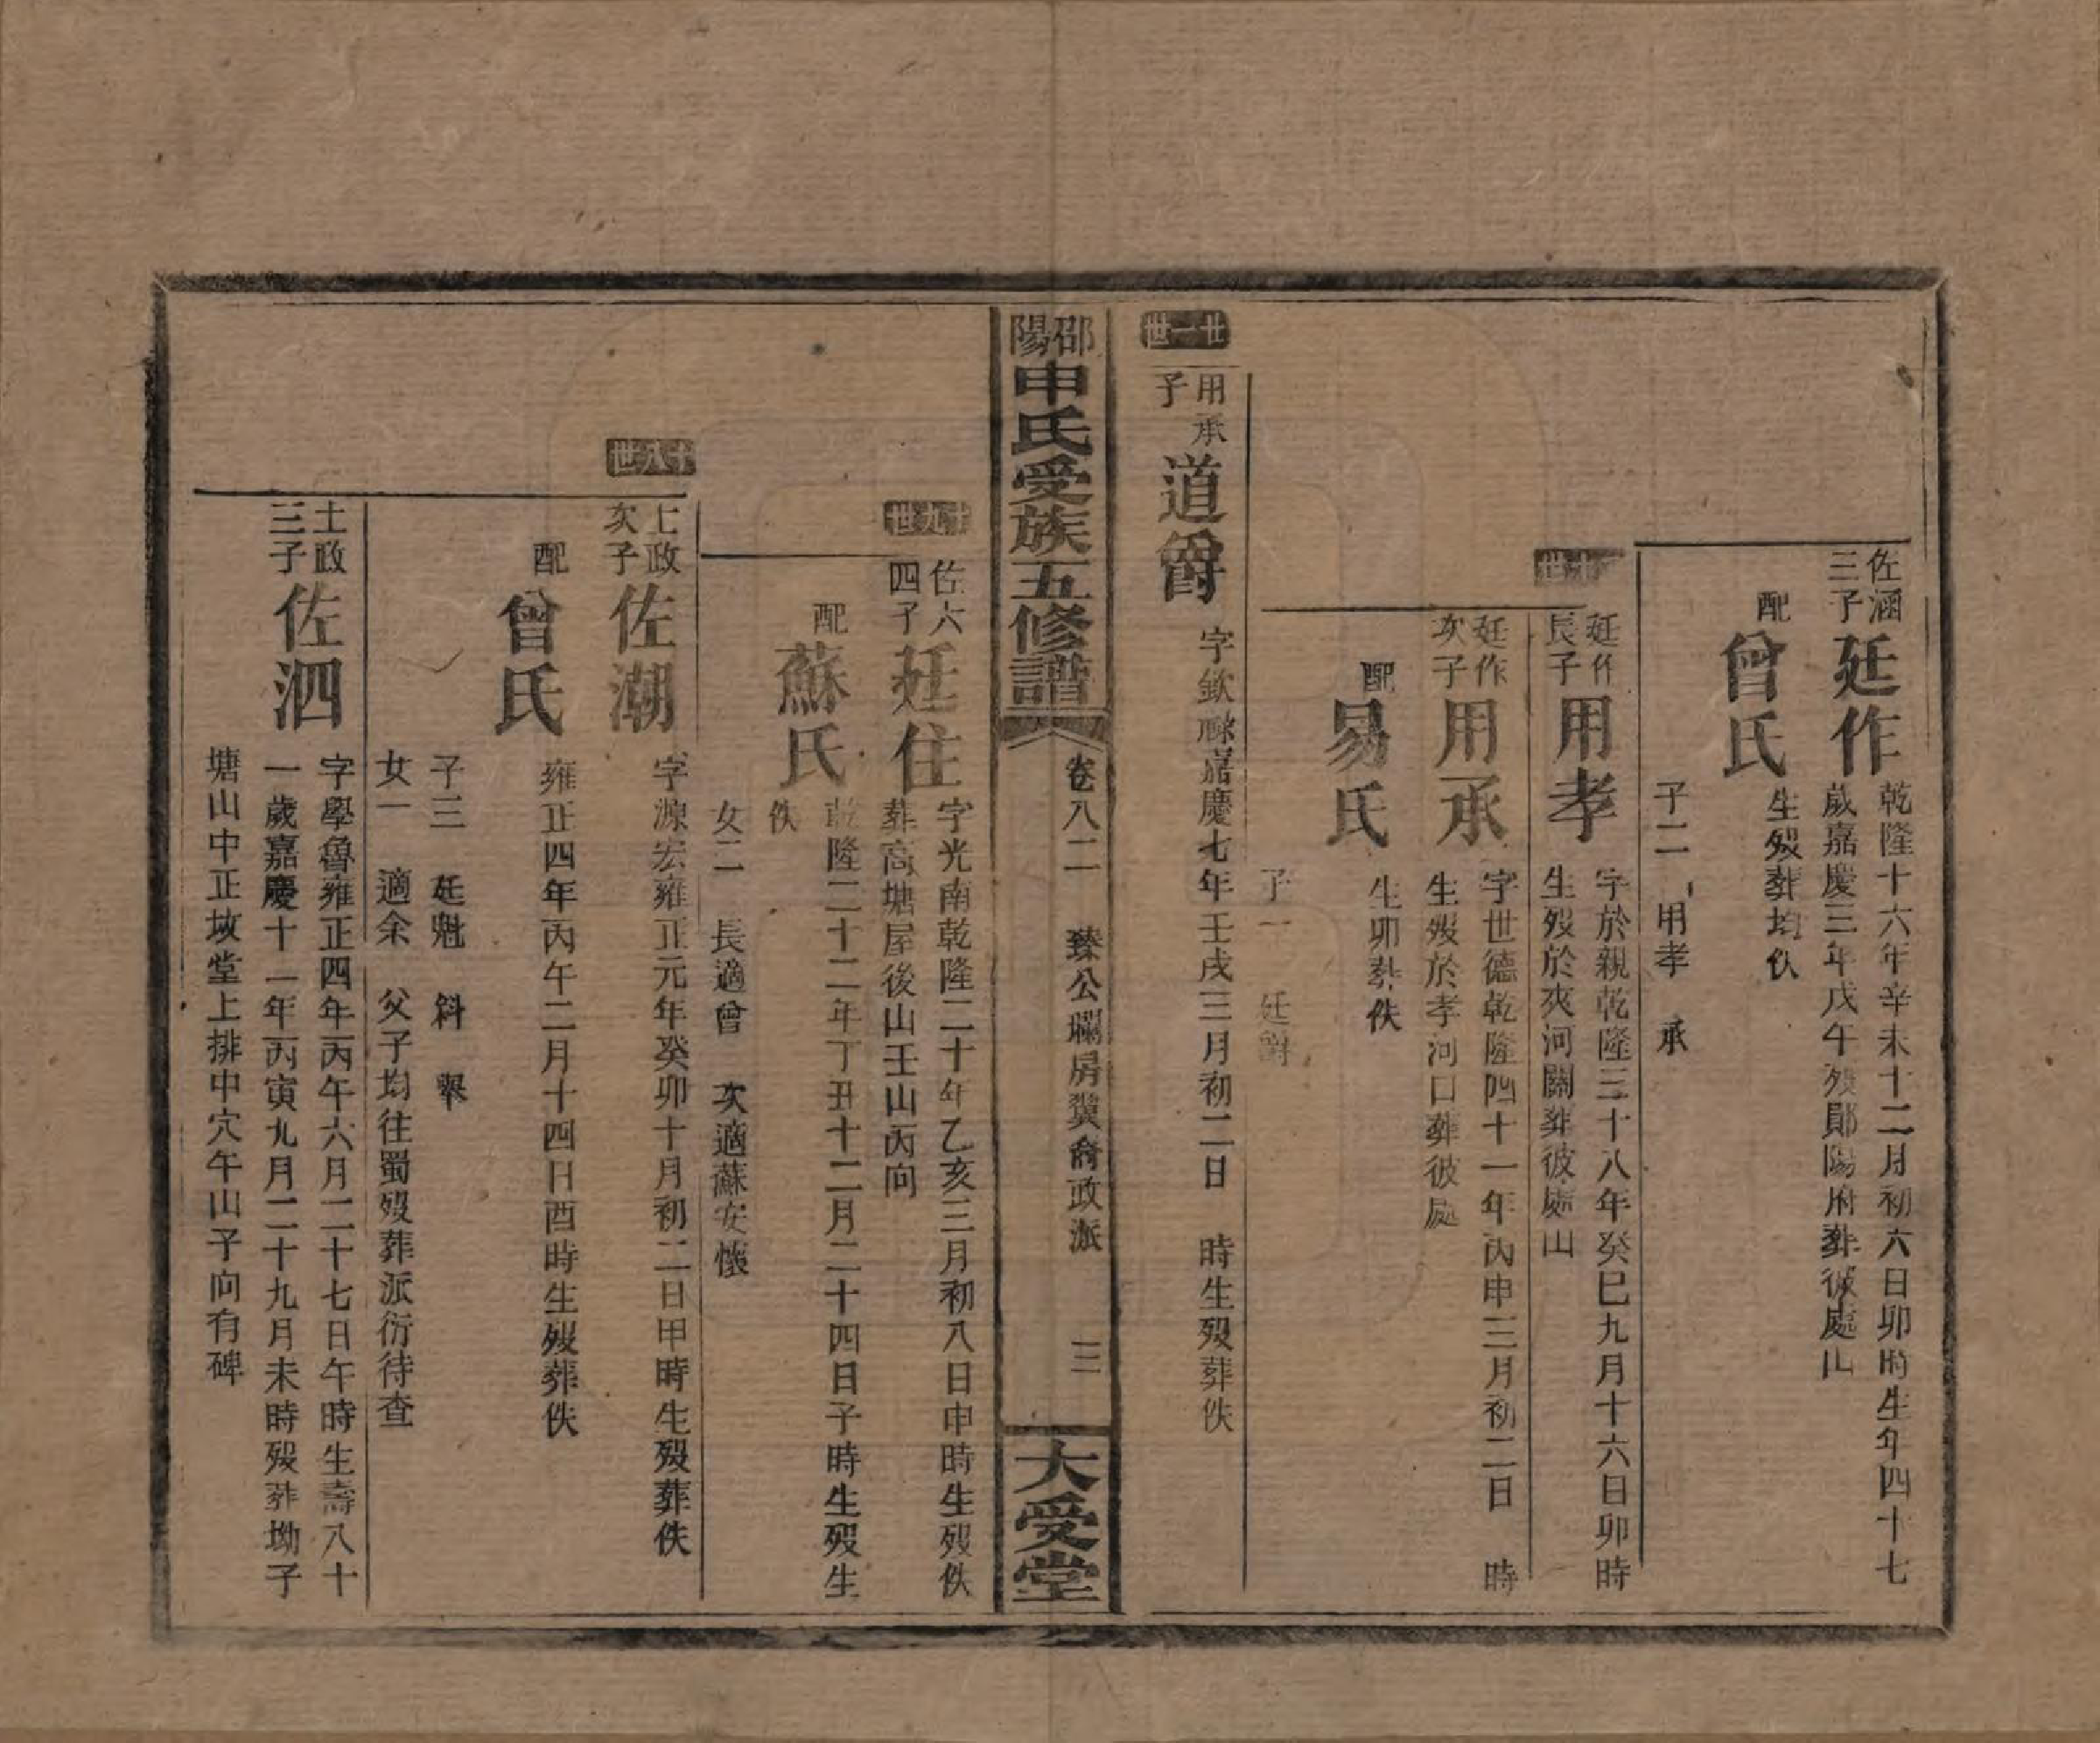 佐涵三子
廷作
乾隆十六年辛未十二月初六日卯時生年四十七
歲嘉慶三年戊午歿鄖陽府葬彼處山
配
曾氏
生歿葬均佚
子二 用孝 承
二十世
廷作長子
用孝
字於親乾隆三十八年癸巳九月十六日卯時
生歿於夾河關葬彼處山
廷作次子
用承
字世德乾隆四十一年丙申三月初二日 時
生歿於孝河口葬彼處
配
易氏
生卯葬佚
子一 廷爵
廿一世
用承子
道爵
字欽 嘉慶七年壬戌三月初二日 時生歿葬佚
邵陽申氏受族五修譜
卷八二 臻公瓓房翼裔政派 三
大受堂
十九世
佐六四子
廷住
字光南乾隆二十年乙亥三月初八日申時生歿佚
葬高塘屋後山壬山丙向
配
蘇氏
乾隆二十二年丁丑十二月二十四日子時生歿生
佚
女二 長適曾 次適蘇安懷
十八世
士政次子
佐潮
字源宏雍正元年癸卯十月初二日甲時生歿葬佚
配
曾氏
雍正四年丙午二月十四日酉時生歿葬佚
子三 廷魁 科 舉
女一 適余 父子均往蜀歿葬派衍待查
士政三子
佐泗
字學魯雍正四年丙午六月二十七日午時生壽八十
一歲嘉慶十一年丙寅九月二十九月未時歿葬坳子
塘山中正坟堂上排中穴午山子向有碑